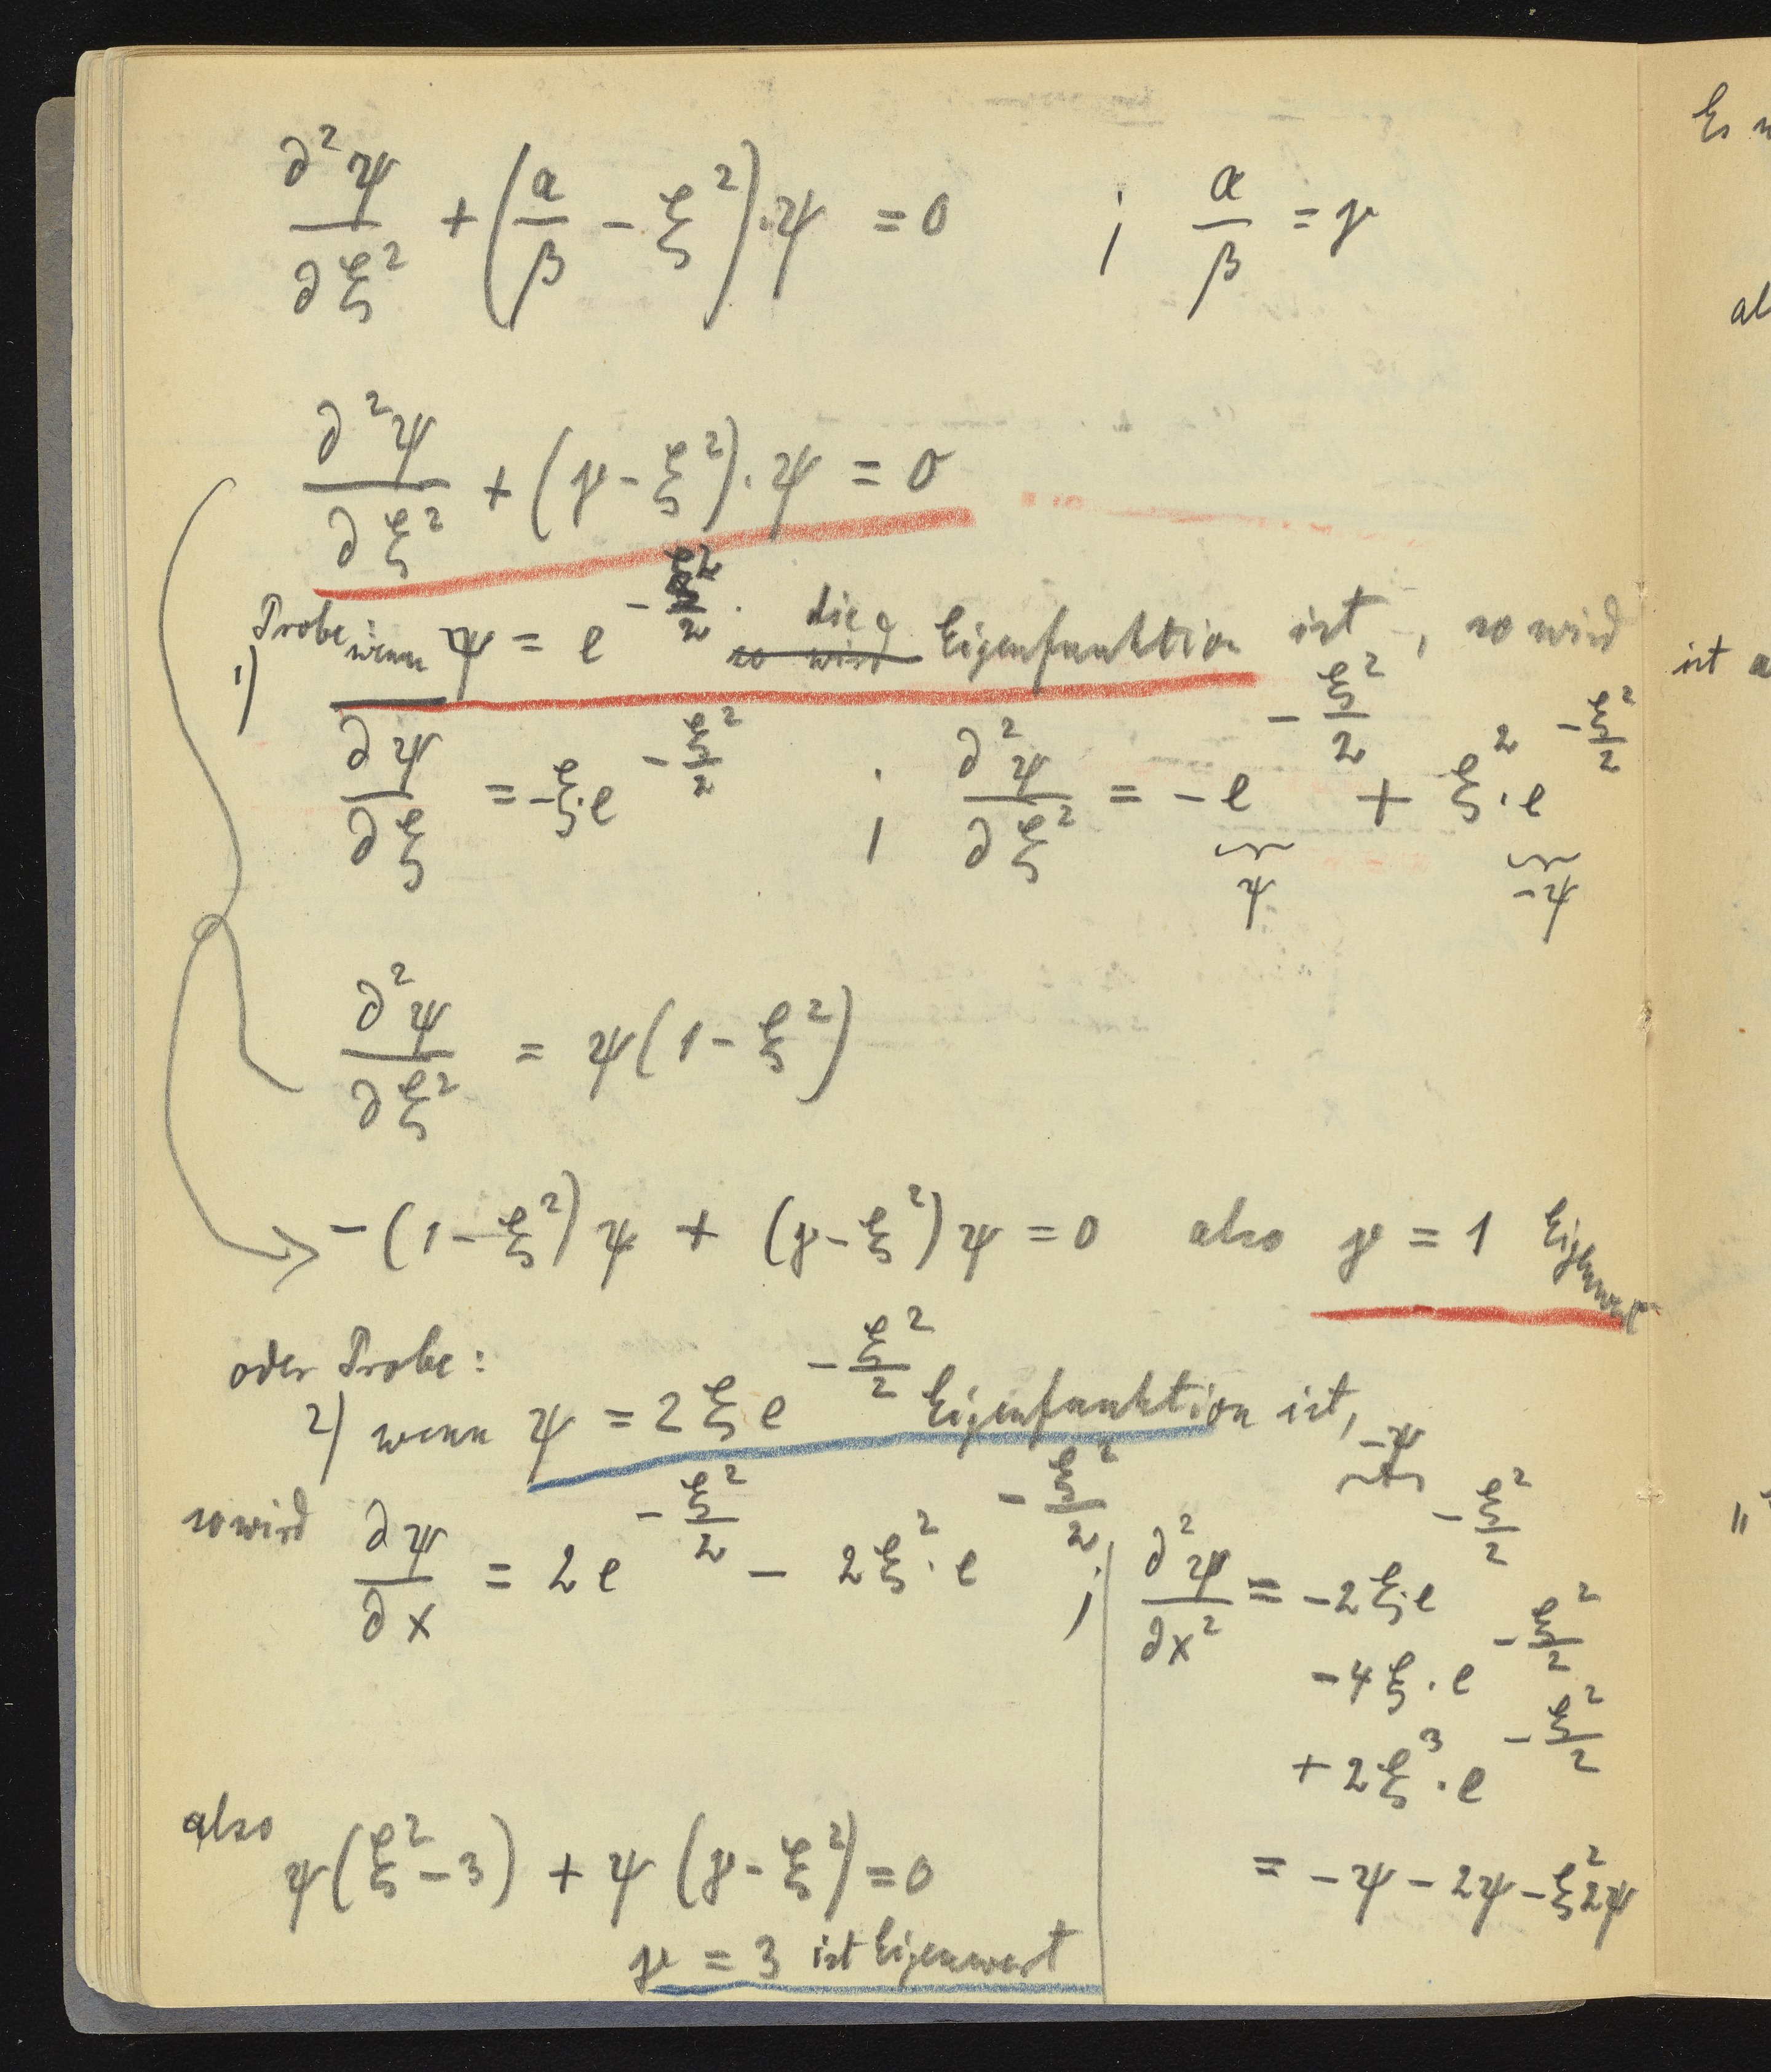 ∂²ψ/∂ξ² + (α/β − ξ²)·ψ = 0 ; α/β = γ
∂²ψ/∂ξ² + (γ − ξ²)·ψ = 0
1) Probe: wenn ψ = e^(−ξ²/2) ~~so wird~~ die Eigenfunktion ist, so wird
∂ψ/∂ξ = −ξ·e^(−ξ²/2) ; ∂²ψ/∂ξ² = −e^(−ξ²/2) + ξ²·e^(−ξ²/2)
ψ −ψ
∂²ψ/∂ξ² = ψ(1 − ξ²)
−(1 − ξ²)ψ + (γ − ξ²)ψ = 0 also γ = 1 Eigenwert
oder Probe:
2) wenn ψ = 2ξe^(−ξ²/2) Eigenfunktion ist,
so wird ∂ψ/∂x = 2e^(−ξ²/2) − 2ξ²·e^(−ξ²/2) ;
−ψ
∂²ψ/∂x² = −2ξ·e^(−ξ²/2)
−4ξ·e^(−ξ²/2)
+2ξ³·e^(−ξ²/2)
= −ψ − 2ψ − ξ²2ψ
also ψ(ξ² − 3) + ψ(γ − ξ²) = 0
γ = 3 ist Eigenwert
Es
al
ist